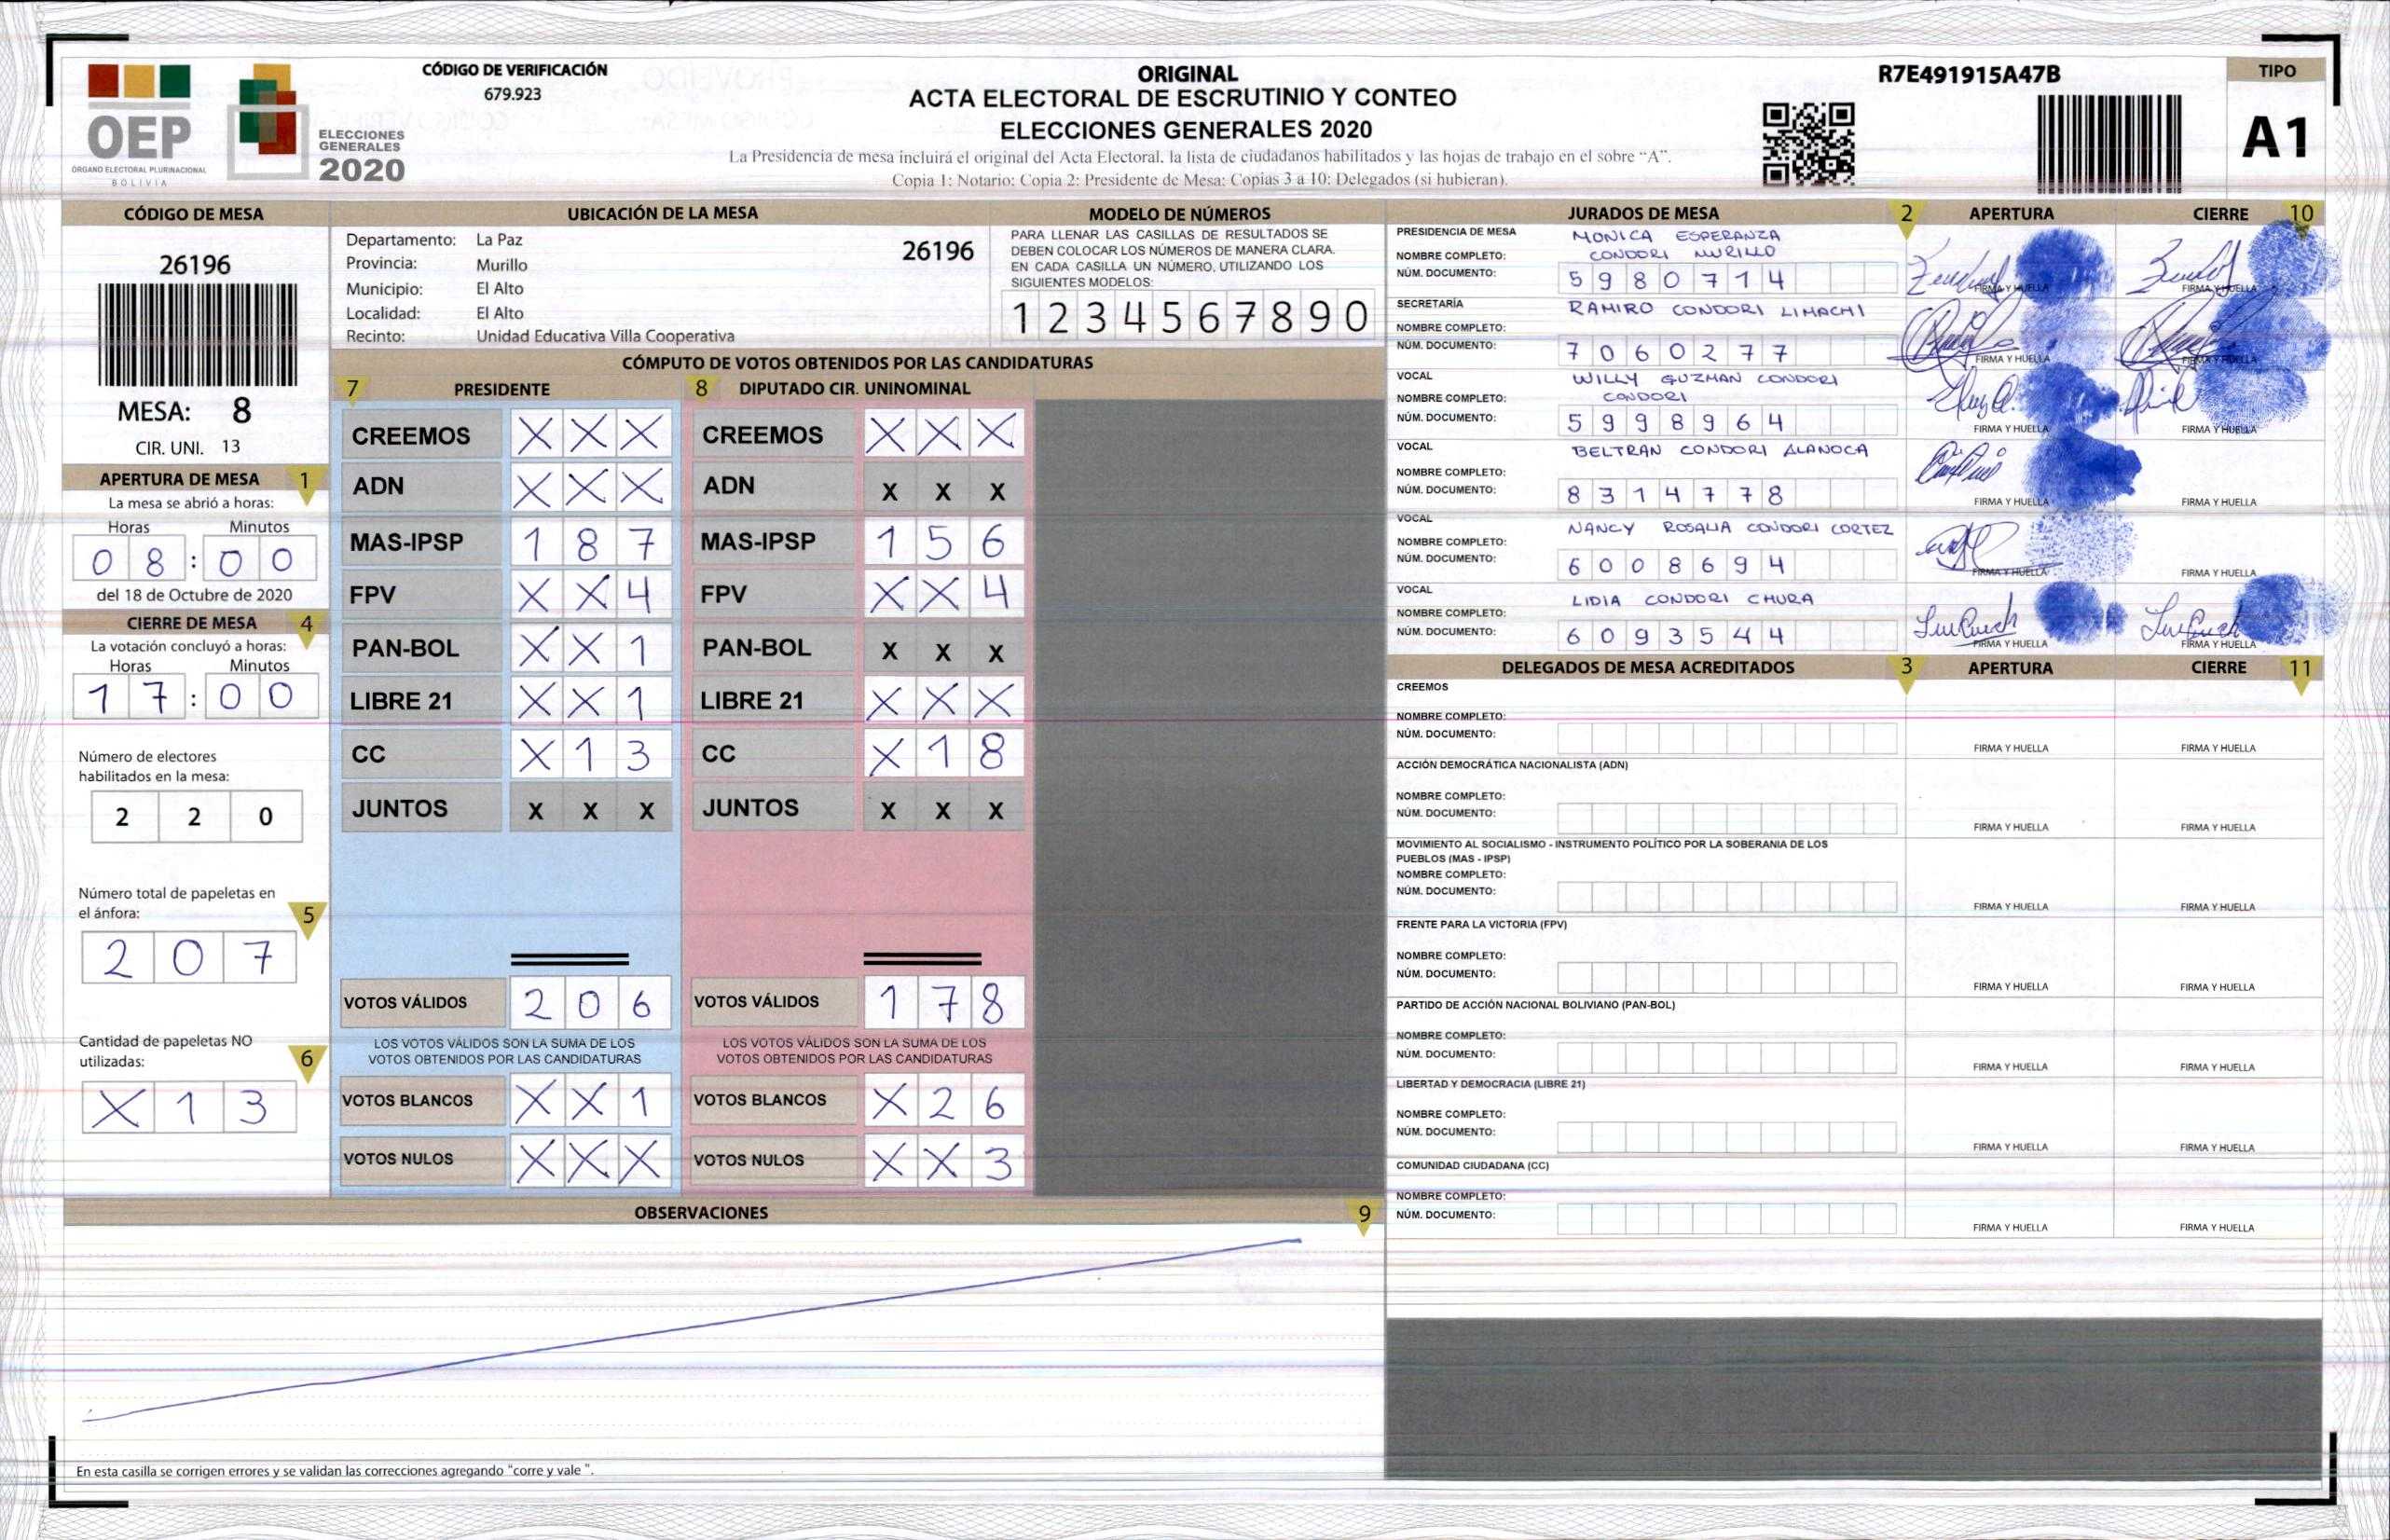 OEP
ÓRGANO ELECTORAL PLURINACIONAL
BOLIVIA
ELECCIONES
GENERALES
2020
CÓDIGO DE VERIFICACIÓN
679.923
ORIGINAL
ACTA ELECTORAL DE ESCRUTINIO Y CONTEO
ELECCIONES GENERALES 2020
La Presidencia de mesa incluirá el original del Acta Electoral, la lista de ciudadanos habilitados y las hojas de trabajo en el sobre “A”.
Copia 1: Notario; Copia 2: Presidente de Mesa; Copias 3 a 10: Delegados (si hubieran).
R7E491915A47B
TIPO
A1
CÓDIGO DE MESA
26196
MESA: 8
CIR. UNI. 13
APERTURA DE MESA 1
La mesa se abrió a horas:
Horas Minutos
0 8 : 0 0
del 18 de Octubre de 2020
CIERRE DE MESA 4
La votación concluyó a horas:
Horas Minutos
1 7 : 0 0
Número de electores
habilitados en la mesa:
2 2 0
Número total de papeletas en
el ánfora: 5
2 0 7
Cantidad de papeletas NO
utilizadas: 6
X 1 3
UBICACIÓN DE LA MESA
Departamento: La Paz
26196
Provincia: Murillo
Municipio: El Alto
Localidad: El Alto
Recinto: Unidad Educativa Villa Cooperativa
MODELO DE NÚMEROS
PARA LLENAR LAS CASILLAS DE RESULTADOS SE
DEBEN COLOCAR LOS NÚMEROS DE MANERA CLARA.
EN CADA CASILLA UN NÚMERO, UTILIZANDO LOS
SIGUIENTES MODELOS:
1 2 3 4 5 6 7 8 9 0
CÓMPUTO DE VOTOS OBTENIDOS POR LAS CANDIDATURAS
7 PRESIDENTE
CREEMOS X X X
ADN X X X
MAS-IPSP 1 8 7
FPV X X 4
PAN-BOL X X 1
LIBRE 21 X X 1
CC X 1 3
JUNTOS X X X
VOTOS VÁLIDOS 2 0 6
LOS VOTOS VÁLIDOS SON LA SUMA DE LOS
VOTOS OBTENIDOS POR LAS CANDIDATURAS
VOTOS BLANCOS X X 1
VOTOS NULOS X X X
8 DIPUTADO CIR. UNINOMINAL
CREEMOS X X X
ADN X X X
MAS-IPSP 1 5 6
FPV X X 4
PAN-BOL X X X
LIBRE 21 X X X
CC X 1 8
JUNTOS X X X
VOTOS VÁLIDOS 1 7 8
LOS VOTOS VÁLIDOS SON LA SUMA DE LOS
VOTOS OBTENIDOS POR LAS CANDIDATURAS
VOTOS BLANCOS X 2 6
VOTOS NULOS X X 3
OBSERVACIONES 9
En esta casilla se corrigen errores y se validan las correcciones agregando “corre y vale ”.
JURADOS DE MESA 2 APERTURA CIERRE 10
PRESIDENCIA DE MESA MONICA ESPERANZA
NOMBRE COMPLETO: CONDORI MURILLO
NÚM. DOCUMENTO: 5 9 8 0 7 1 4
FIRMA Y HUELLA FIRMA Y HUELLA
SECRETARÍA RAMIRO CONDORI LIMACHI
NOMBRE COMPLETO:
NÚM. DOCUMENTO: 7 0 6 0 2 7 7
FIRMA Y HUELLA FIRMA Y HUELLA
VOCAL WILLY GUZMAN CONDORI
NOMBRE COMPLETO: CONDORI
NÚM. DOCUMENTO: 5 9 9 8 9 6 4
FIRMA Y HUELLA FIRMA Y HUELLA
VOCAL BELTRAN CONDORI ALANOCA
NOMBRE COMPLETO:
NÚM. DOCUMENTO: 8 3 1 4 7 7 8
FIRMA Y HUELLA FIRMA Y HUELLA
VOCAL NANCY ROSALIA CONDORI CORTEZ
NOMBRE COMPLETO:
NÚM. DOCUMENTO: 6 0 0 8 6 9 4
FIRMA Y HUELLA FIRMA Y HUELLA
VOCAL LIDIA CONDORI CHURA
NOMBRE COMPLETO:
NÚM. DOCUMENTO: 6 0 9 3 5 4 4
FIRMA Y HUELLA FIRMA Y HUELLA
DELEGADOS DE MESA ACREDITADOS 3 APERTURA CIERRE 11
CREEMOS
NOMBRE COMPLETO:
NÚM. DOCUMENTO:
FIRMA Y HUELLA FIRMA Y HUELLA
ACCIÓN DEMOCRÁTICA NACIONALISTA (ADN)
NOMBRE COMPLETO:
NÚM. DOCUMENTO:
FIRMA Y HUELLA FIRMA Y HUELLA
MOVIMIENTO AL SOCIALISMO - INSTRUMENTO POLÍTICO POR LA SOBERANIA DE LOS
PUEBLOS (MAS - IPSP)
NOMBRE COMPLETO:
NÚM. DOCUMENTO:
FIRMA Y HUELLA FIRMA Y HUELLA
FRENTE PARA LA VICTORIA (FPV)
NOMBRE COMPLETO:
NÚM. DOCUMENTO:
FIRMA Y HUELLA FIRMA Y HUELLA
PARTIDO DE ACCIÓN NACIONAL BOLIVIANO (PAN-BOL)
NOMBRE COMPLETO:
NÚM. DOCUMENTO:
FIRMA Y HUELLA FIRMA Y HUELLA
LIBERTAD Y DEMOCRACIA (LIBRE 21)
NOMBRE COMPLETO:
NÚM. DOCUMENTO:
FIRMA Y HUELLA FIRMA Y HUELLA
COMUNIDAD CIUDADANA (CC)
NOMBRE COMPLETO:
NÚM. DOCUMENTO:
FIRMA Y HUELLA FIRMA Y HUELLA